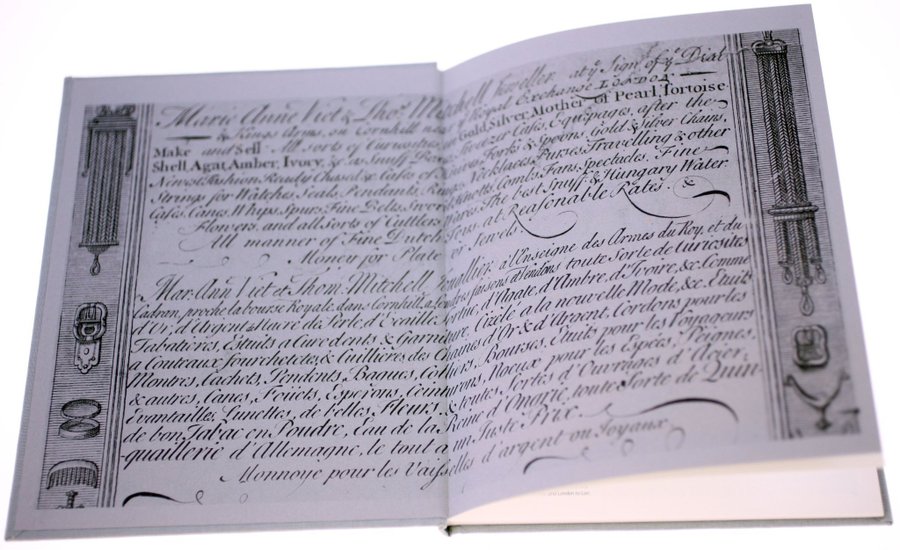 Marie Anne Viet & Tho.s Mitchell Jeweller at y.e Sign of y.e Dial
& Kings Arms, on Cornhill near y.e Royal Exchange LONDON.
Make and Sell All Sorts of Curiosities Gold, Silver, Mother-of Pearl, Tortoise
Shell, Agat, Amber, Ivory, &c. as Snuff Tweezer Cases, Equipages, after the
Newest Fashion Ready Chased & Cases of Knives Forks & Spoons, Gold & Silver Chains,
Strings for Watches Seals, Pendants, Rings, Necklaces, Purses Travelling & other
Cases, Canes, Whips, Spurs, Fine Belts, Sword Knotts, Combs, Fans, Spectacles, Fine
Flowers, and all Sorts of Cuttlery Wares. The best Snuff & Hungary Water
All manner of Fine Dutch Toys, at Reasonable Rates. &
Money for Plate or Jewels
Mar. Ann. Viet et Thom. Mitchell Jouallier, à l'Enseigne des Armes du Roy, et du
Cadran, proche la bourse Royale, dans Cornhill, à Londres faisons & Vendons toute Sorte de Curiosités
d'Or, d'Argent, Nacre de Perle, d'Ecaille, Tortue, d'Agate, d'Ambre, d'Ivoire, &c. Comme
Tabatières, Estuits a Curedents & Garniture, Cizelé à la nouvelle Mode, &c. Etuits
a Couteaux fourchetetes, & Cuillieres, des Chaines d'Or & d'Argent, Cordons pour les
Montres, Cachets, Pendents, Bagues, Colliers, Bourses, Etuits pour les Voyageurs
& autres, Canes, Fouets, Esperons, Ceinturons, Noeux pour les Espées, Peignes,
Evantailles, Lunettes, de belles Fleurs, & toutes Sortes d'Ouvrages d'Acier,
de bon Tabac en Poudre, Eau de la Reine d'Ongrie, toute Sorte de Quin-
quaillerie d'Allemagne, le tout a un Juste Prix.
Monnoye pour les Vaisselles d'argent ou Joyaux